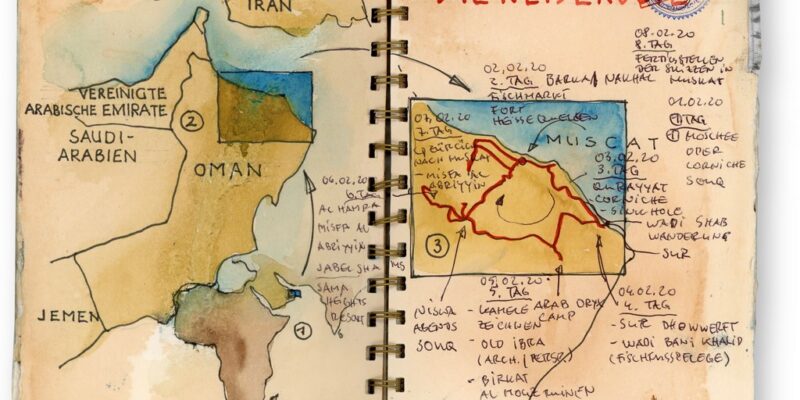 IRAN
VEREINIGTE
ARABISCHE EMIRATE
SAUDI-
ARABIEN
②
OMAN
JEMEN
①
06.02.20
6. TAG
AL HAMRA
MISFA AL
ABRIYYIN
JABEL SHAMS
SAMA
HEIGHTS
RESORT
02.02.20
2. TAG BARKA/NAKHAL
FISCHMARKT
FORT
HEISSE QUELLEN
08.02.20
8. TAG
FERTIGSTELLEN
DER SKIZZEN IN
MUSKAT
01.02.20
1 TAG
MOSCHEE
OPER
CORNICHE
SOUQ
07.02.20
7. TAG
ZURÜCK
NACH MUSKAT
- MISFA AL
ABRIYYIN
MUSCAT
03.02.20
3. TAG
QURAYYAT
CORNICHE
- SINKHOLE
WADI SHAB
WANDERUNG
SUR
③
NISWA
ABENDS
SOUQ
05.02.20
5. TAG
- KAMELE ARAB ORYX
ZEICHNEN CAMP
- OLD IBRA
(ARCH./PERSP.)
- BIRKAT
AL MOUZ RUINEN
04.02.20
4. TAG
- SUR DHOWWERFT
- WADI BANI KHALID